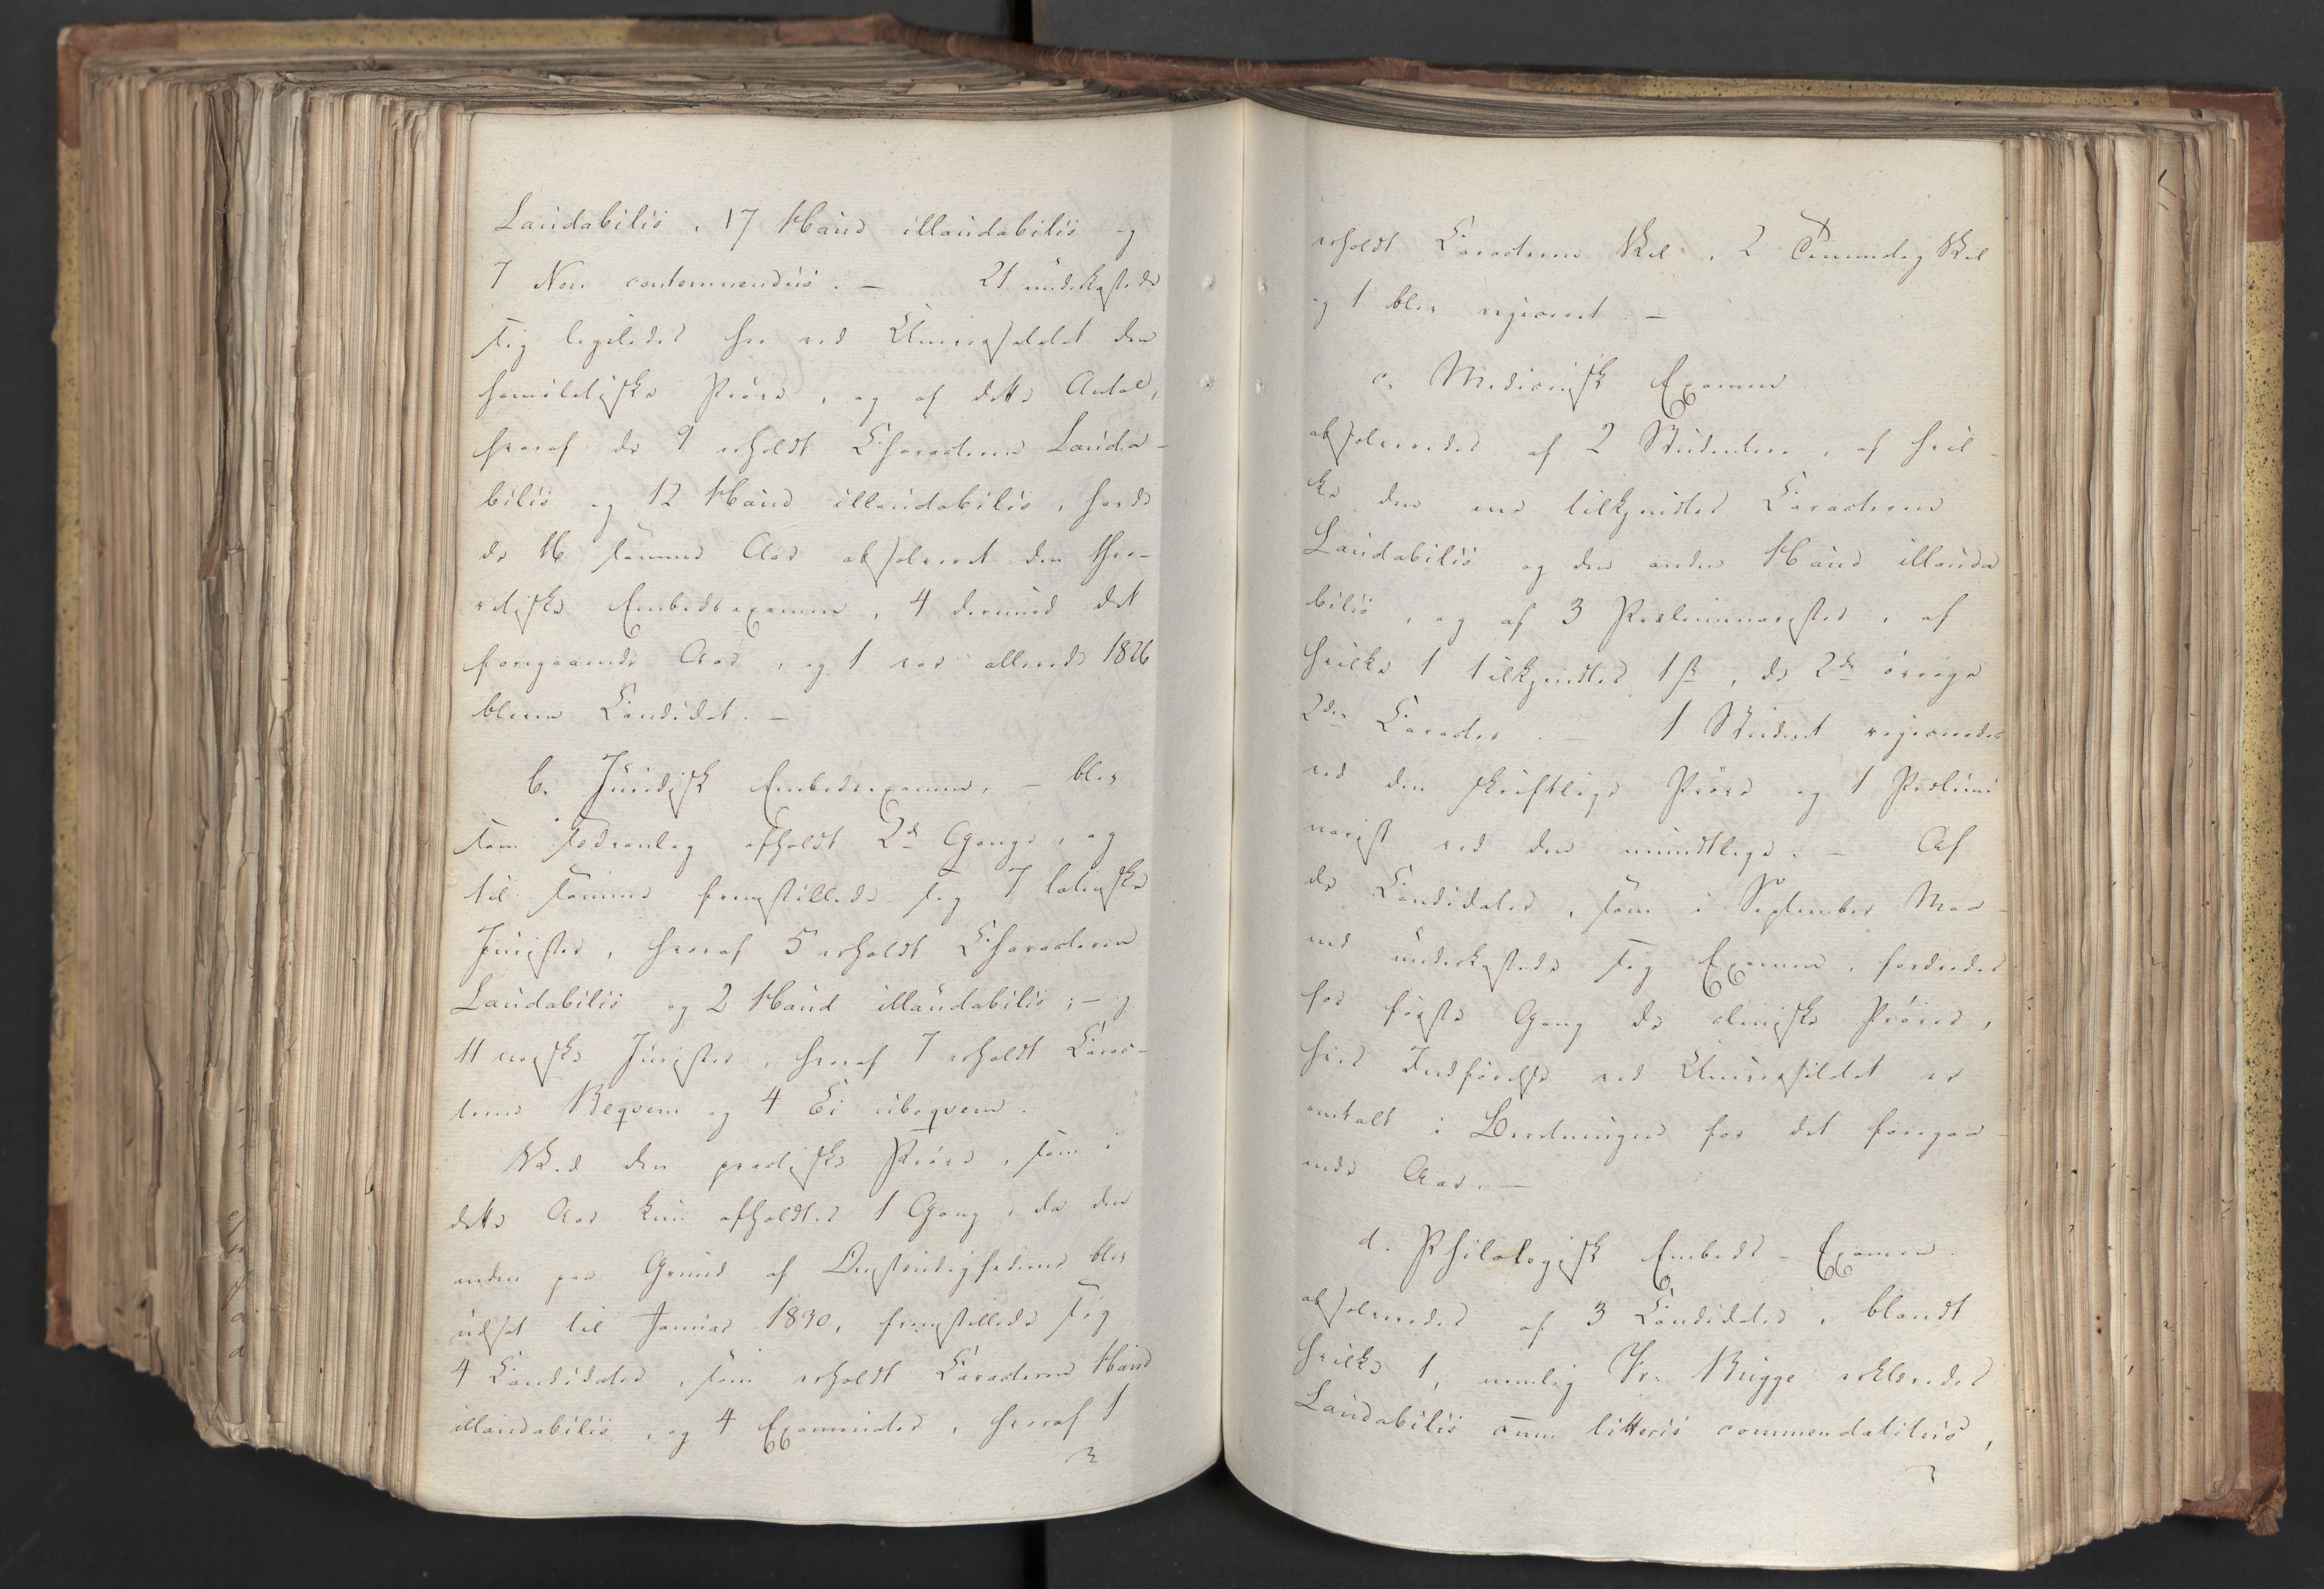 Laudabilis, 17 Haud illaudabilis og
7 Non contemnendus. — 21 underkastede
sig ligeledes her ved Universitetet den
homiletiske Prøve, og af dette Antal,
hvoraf de 9 erholdt Characteren Lauda-
bilis og 12 Haud illaudabilis, havde
de 16 samme Aar absolveret den theo-
retiske Embedsexamen, 4 derimod det
foregaaende Aar, og 1 var allerede 1826
bleven Candidat. —
b. Juridisk Embedsexamen, — blev
som sædvanlig afholdt 2de Gange, og
til samme fremstillede sig 7 latinske
Jurister, hvoraf 5 erholdt Characteren
Laudabilis og 2 Haud illaudabilis; — og
11 norske Jurister, hvoraf 7 erholdt Carac-
teren Beqvem og 4 Ei ubeqvem.
Ved den practiske Prøve, som i
dette Aar kun afholdtes 1 Gang, da den
anden paa Grund af Omstændighederne blev
udsat til Januar 1830, fremstillede sig
4 Candidater, som erholdt Caracteren Haud
illaudabilis, og 4 Examinater, hvoraf 1
erholdt Caracteren Vel, 2 Temmelig Vel
og 1 blev rejiceret. —
c. Medicinsk Examen
absolveredes af 2 Studentere, af hvil-
ke den ene tilkjendtes Caracteren
Laudabilis og den anden Haud illauda
bilis, og af 3 Præliminarister, af
hvilke 1 tilkjendtes 1ste, de 2de øvrige
2den Caracter. — 1 Student rejiceredes
ved den skriftlige Prøve og 1 Prælimi
narist ved den mundtlige. — Af
de Candidater, som i September Maa-
ned underkastede sig Examen, fordredes
for første Gang de cliniske Prøver,
hvis Indførelse ved Universitetet er
omtalt i Beretningen for det foregaa-
ende Aar. —
d. Philologisk Embeds-Examen
absolveredes af 3 Candidater, blandt
hvilke 1, nemlig Fr. Bugge erklæredes
Laudabilis cum litteris commendatitiis,